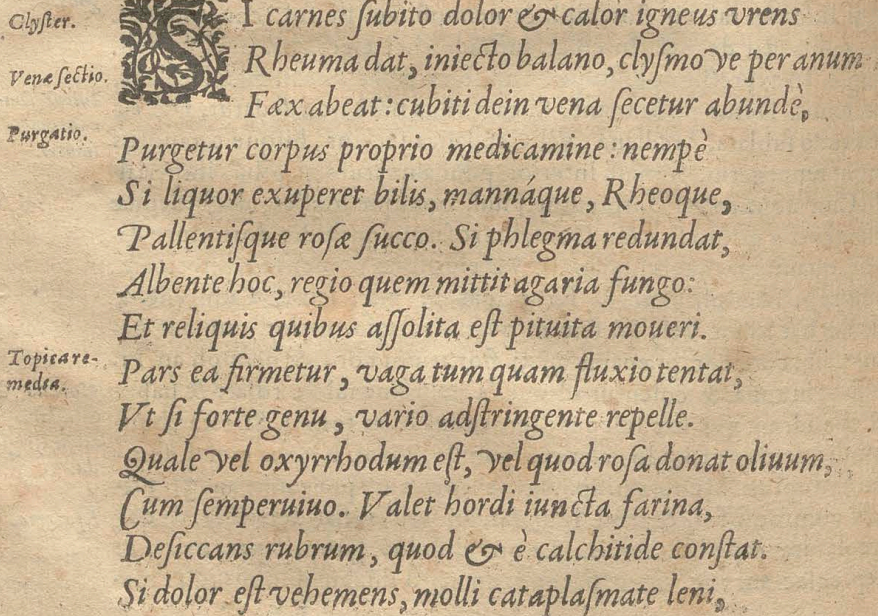 Clyster.
SI carnes ſubito dolor & calor igneus vrens
Venæ ſectio.
Rheuma dat, iniecto balano, clyſmo ve per anum
Fæx abeat: cubiti dein vena ſecetur abundè,
Purgatio.
Purgetur corpus proprio medicamine: nempè
Si liquor exuperet bilis, mannáque, Rheoque,
Pallentiſque roſæ ſucco. Si phlegma redundat,
Albente hoc, regio quem mittit agaria fungo:
Et reliquis quibus aſſolita eſt pituita moueri.
Topica re-
media.
Pars ea firmetur, vaga tum quam fluxio tentat,
Vt ſi forte genu, vario adſtringente repelle.
Quale vel oxyrrhodum eſt, vel quod roſa donat oliuum,
Cum ſemperuiuo. Valet hordi iuncta farina,
Deſiccans rubrum, quod & è calchitide conſtat.
Si dolor eſt vehemens, molli cataplaſmate leni,